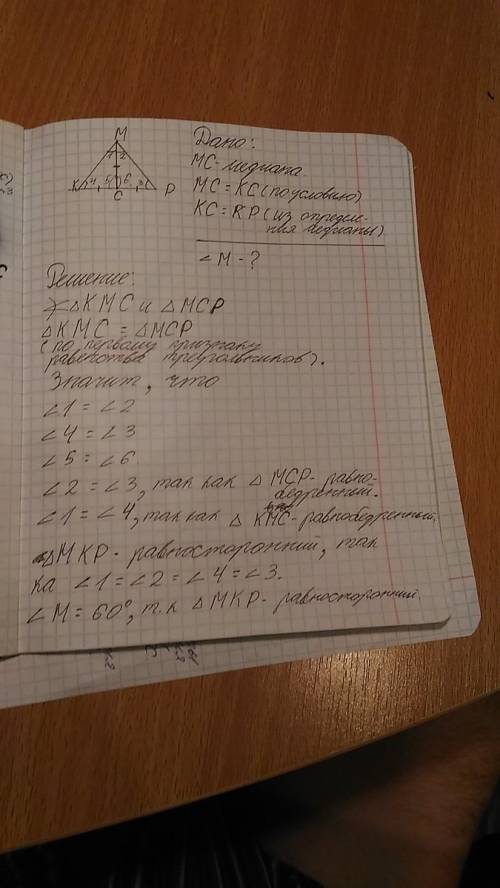 M
1 2
K 4 5 6 3 P
C
Дано:
MC - медиана.
MC = KC (по условию)
KC = KP (из определе-
ния медианы)
∠M - ?
Решение:
△KMC и △MCP
△KMC = △MCP
(по первому признаку
равенства треугольников).
Значит, что
∠1 = ∠2
∠4 = ∠3
∠5 = ∠6
∠2 = ∠3, так как △MCP - равно-
бедренний.
∠1 = ∠4, так как △ KMC - равнобедренный.
△MKP - равносторонний, так
ка ∠1 = ∠2 = ∠4 = ∠3.
∠M = 60°, т.к △MKP - равносторонний.